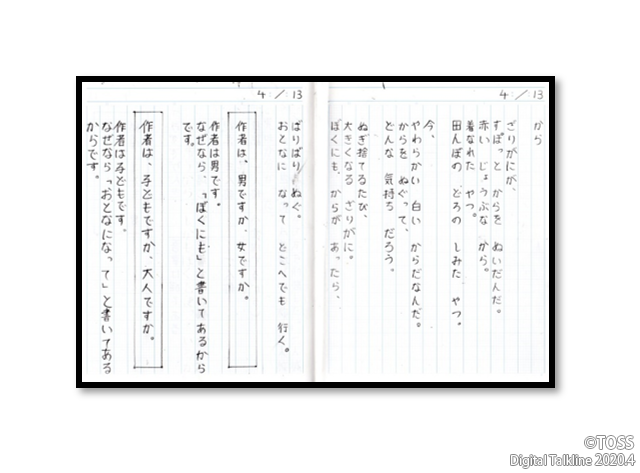 4／13
から
ざりがにが、
すぽっと からを ぬいだんだ。
赤い じょうぶな から。
着なれた やつ。
田んぼの どろの しみた やつ。
今、
やわらかい 白い からだなんだ。
からを ぬぐって、
どんな 気持ち だろう。
ぬぎ捨てるたび、
大きくなる ざりがに。
ぼくにも、からが あったら、
4／13
ばりばり ぬぐ。
おとなに なって どこへでも 行く。
作者は、男ですか、女ですか。
作者は男です。
なぜなら、「ぼくにも」と書いてあるから
です。
作者は、子どもですか、大人ですか。
作者は子どもです。
なぜなら「おとなになって」と書いてある
からです。
©TOSS
Digital Talkline 2020.4